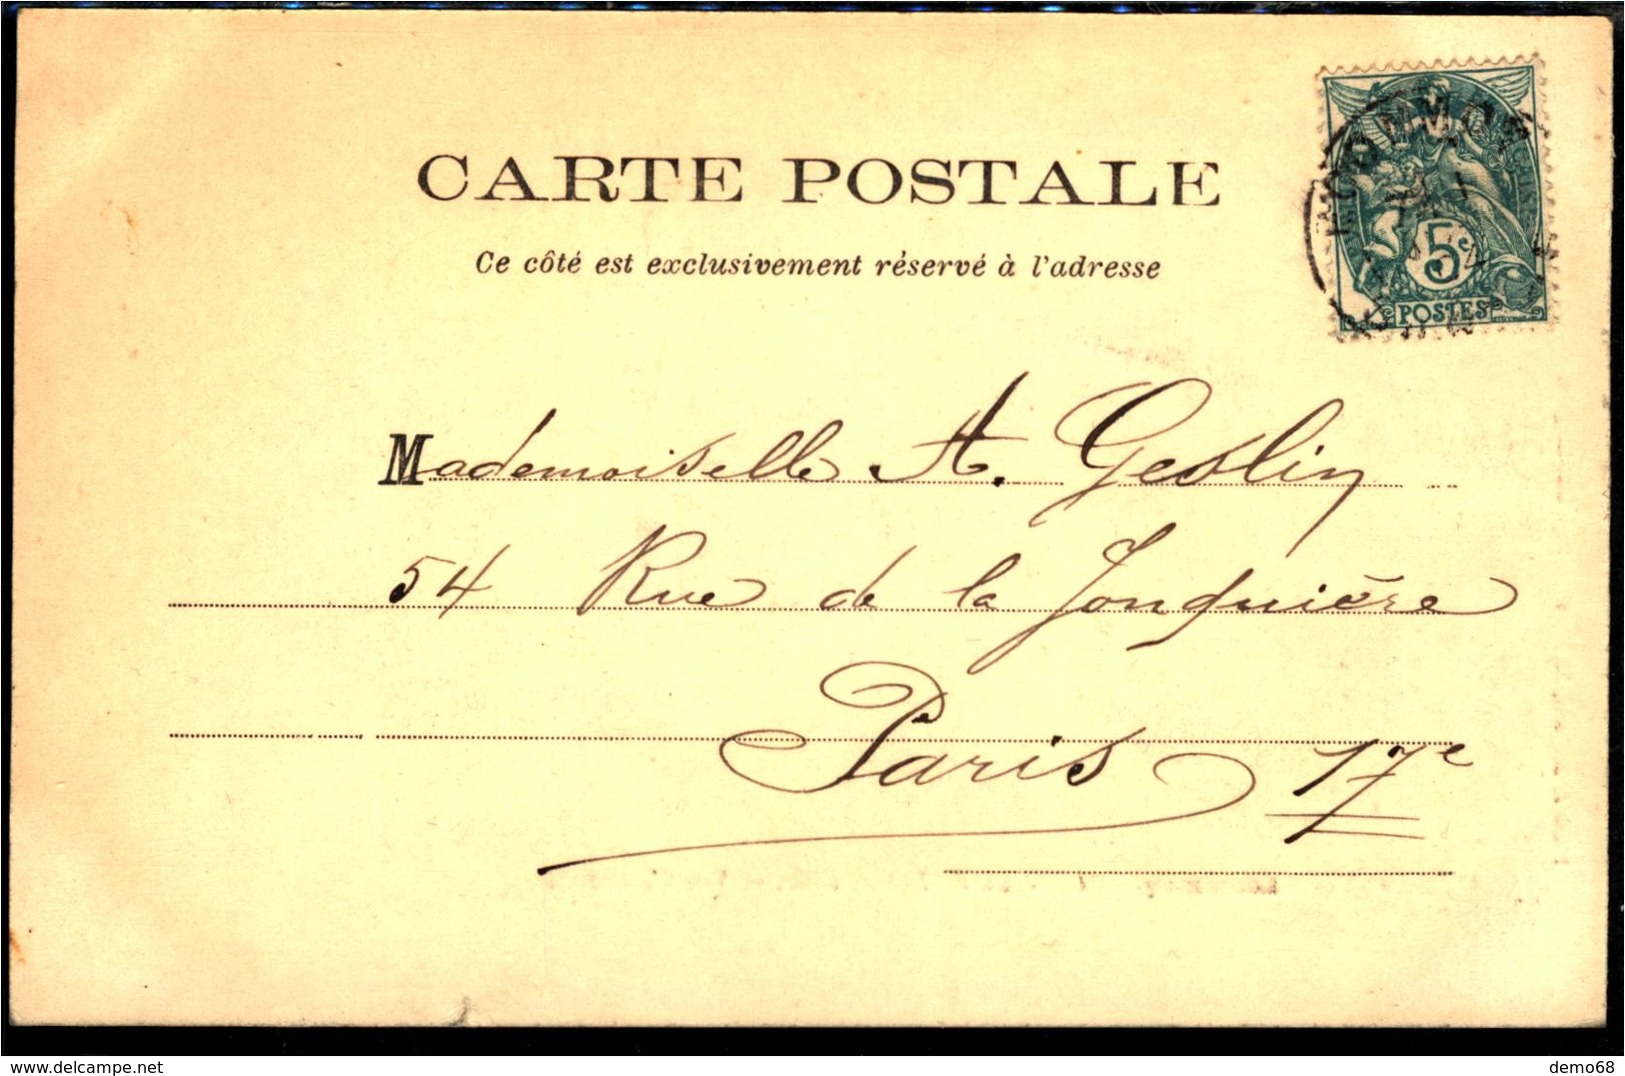 CARTE POSTALE
Ce côté est exclusivement réservé à l'adresse
5c
POSTES
Mademoiselle A. Geslin
54 Rue de la Jonquière
Paris 17e
delcampe.net
demo68